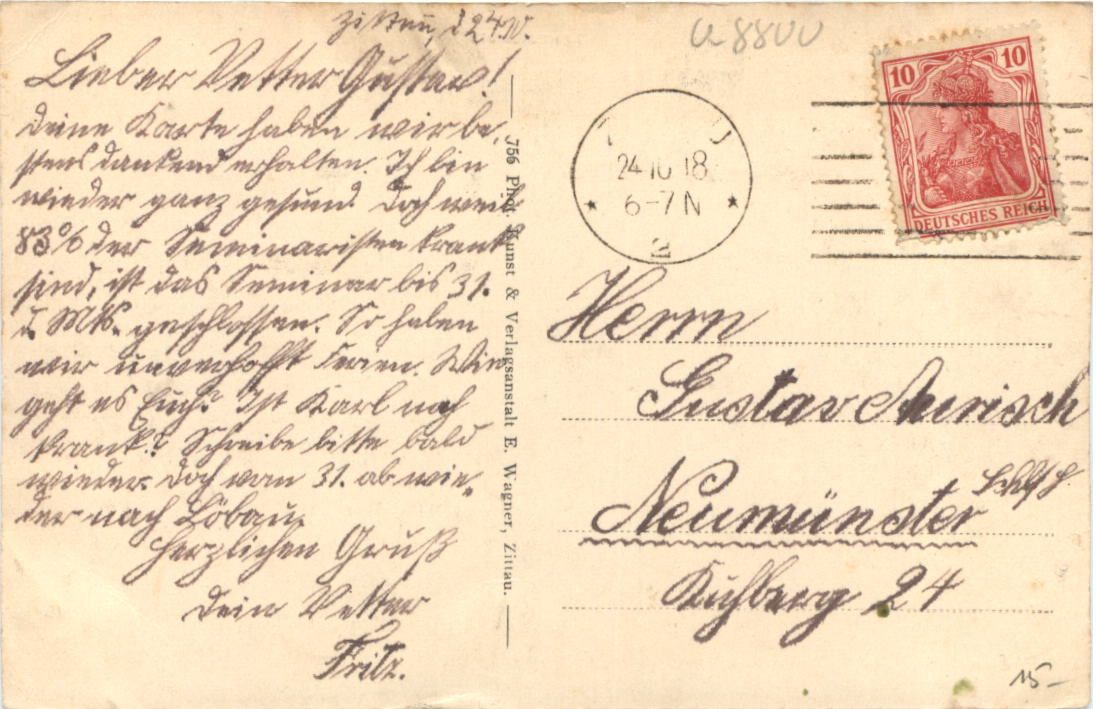 Zittau, d 24.10.
Lieber Vetter Gustav!
Deine Karte haben wir be-
stens dankend erhalten. Ich bin
wieder ganz gesund. Doch weil
83% der Seminaristen krank
sind, ist das Seminar bis 31.
d. Mts. geschlossen. So haben
wir unverhofft Ferien. Wie
geht es Euch? Ist Karl noch
krank? Schreibe bitte bald
wieder. Doch vom 31. ab wie-
der nach Löbau.
Herzlichen Gruß
Dein Vetter
Fritz.
756 Phot. Kunst & Verlagsanstalt E. Wagner, Zittau.
a 8800
24 10 18
6-7 N
10 10
DEUTSCHES REICH
Herrn
Gustav Aurisch
Neumünster
Kuhberg 24
15-